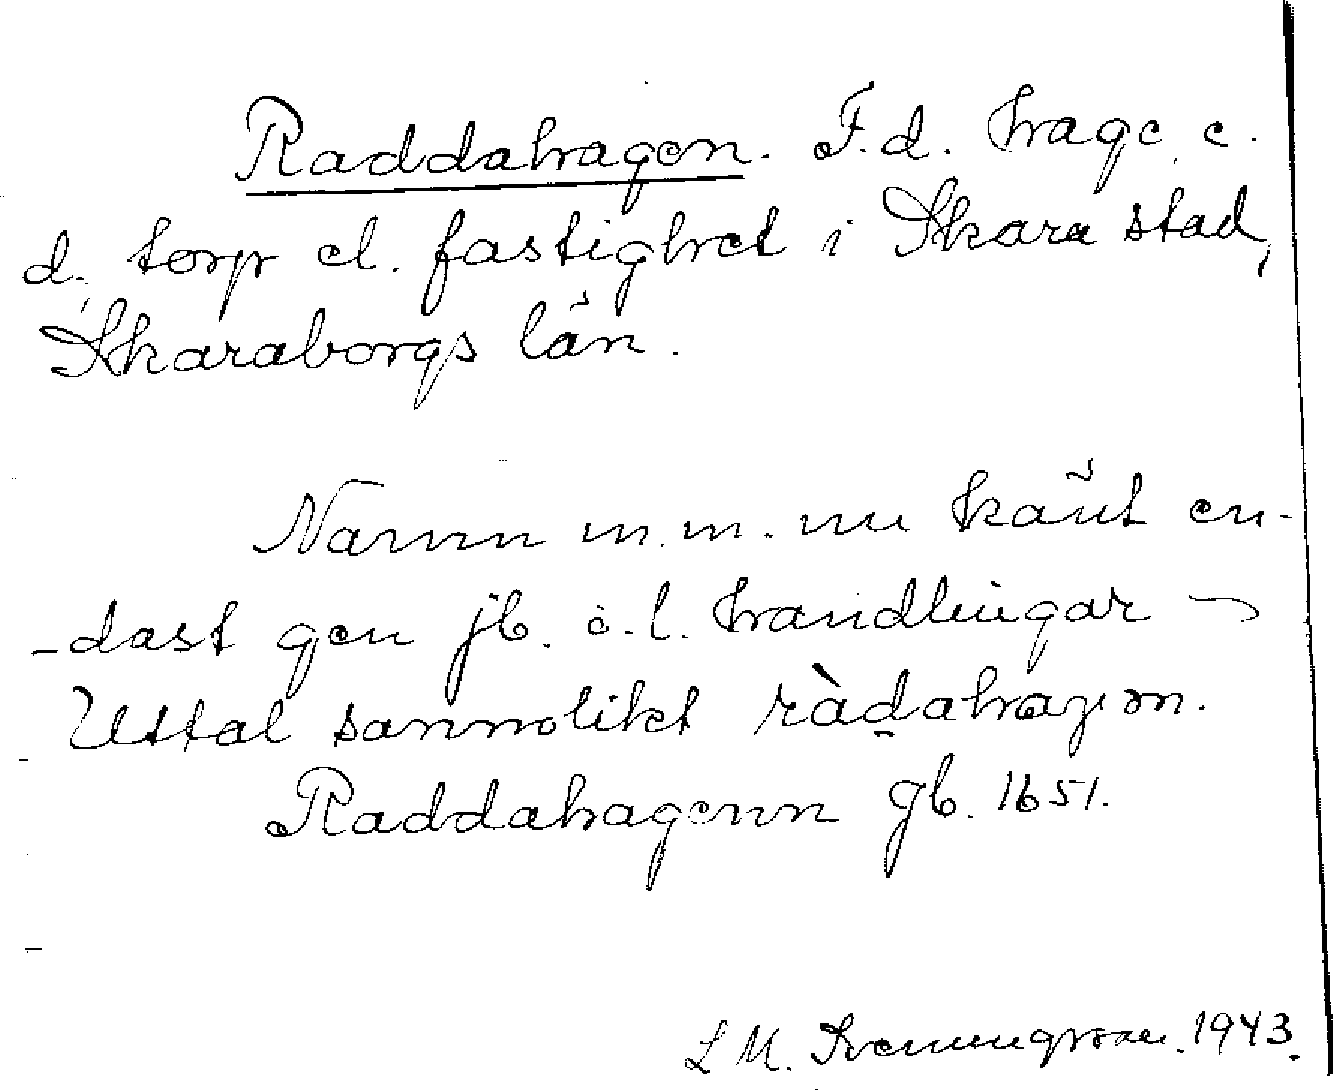 Raddahagen. F.d. hage, e.
d., torp el. fastighet i Skara stad,
Skaraborgs län.
Namn m.m. nu känt en-
-dast gen jb. o.l. handlingar
Uttal sannolikt ràdahagen.
Raddahagenn jb. 1651.
L M. Svenungsson. 1943.